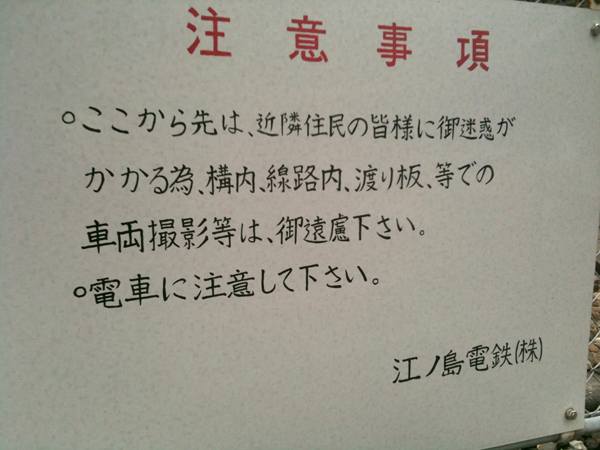 注意事項
○ここから先は、近隣住民の皆様に御迷惑が
かかる為、構内、線路内、渡り板、等での
車両撮影等は、御遠慮下さい。
○電車に注意して下さい。
江ノ島電鉄(株)